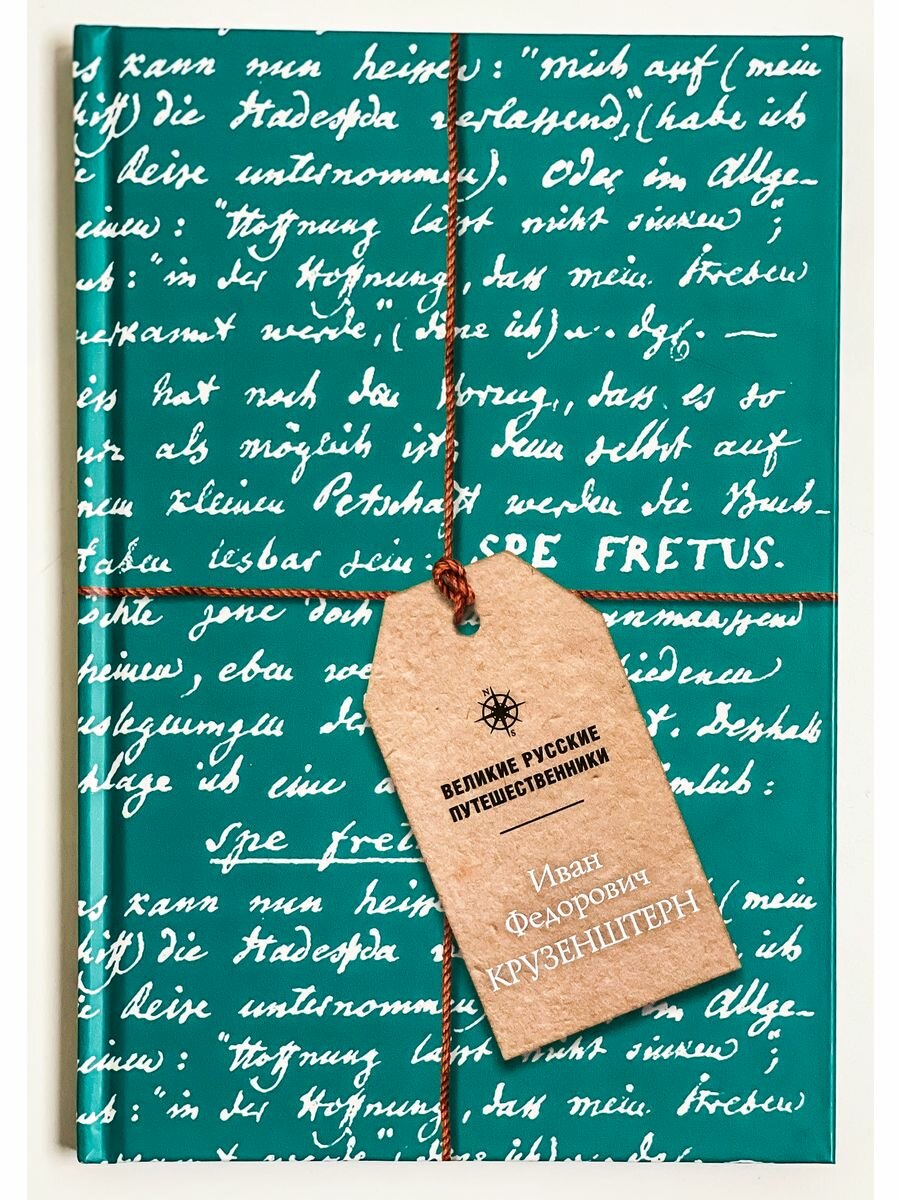 s kann nun heissen: "mich auf (mein
hiff) die Nadeshda verlassend", (habe ich
e Reise unternommen). Oder im Allge-
einen: "Hoffnung lässt nicht sinken";
uch: "in der Hoffnung, dass mein Streben
erkannt werde", (dine ich) u. dgl. —
ess hat noch den Vorzug, dass es so
als möglich ist; denn selbst auf
nem kleinen Petschaft werden die Buch-
taben lesbar sein: SPE FRETUS.
öchte jene doch anmaassend
heinen, eben we iedenen
uslegungen der t. Deshalb
hlage ich eine a mlich:
spe fret
N
S
ВЕЛИКИЕ РУССКИЕ
ПУТЕШЕСТВЕННИКИ
Иван
Федорович
КРУЗЕНШТЕРН
s kann nun heiss (mein
hiff) die Nadeshda v ich
e Reise unternommen im Allge-
einen: "Hoffnung lässt nicht sinken";
uch: "in der Hoffnung, dass mein Streben